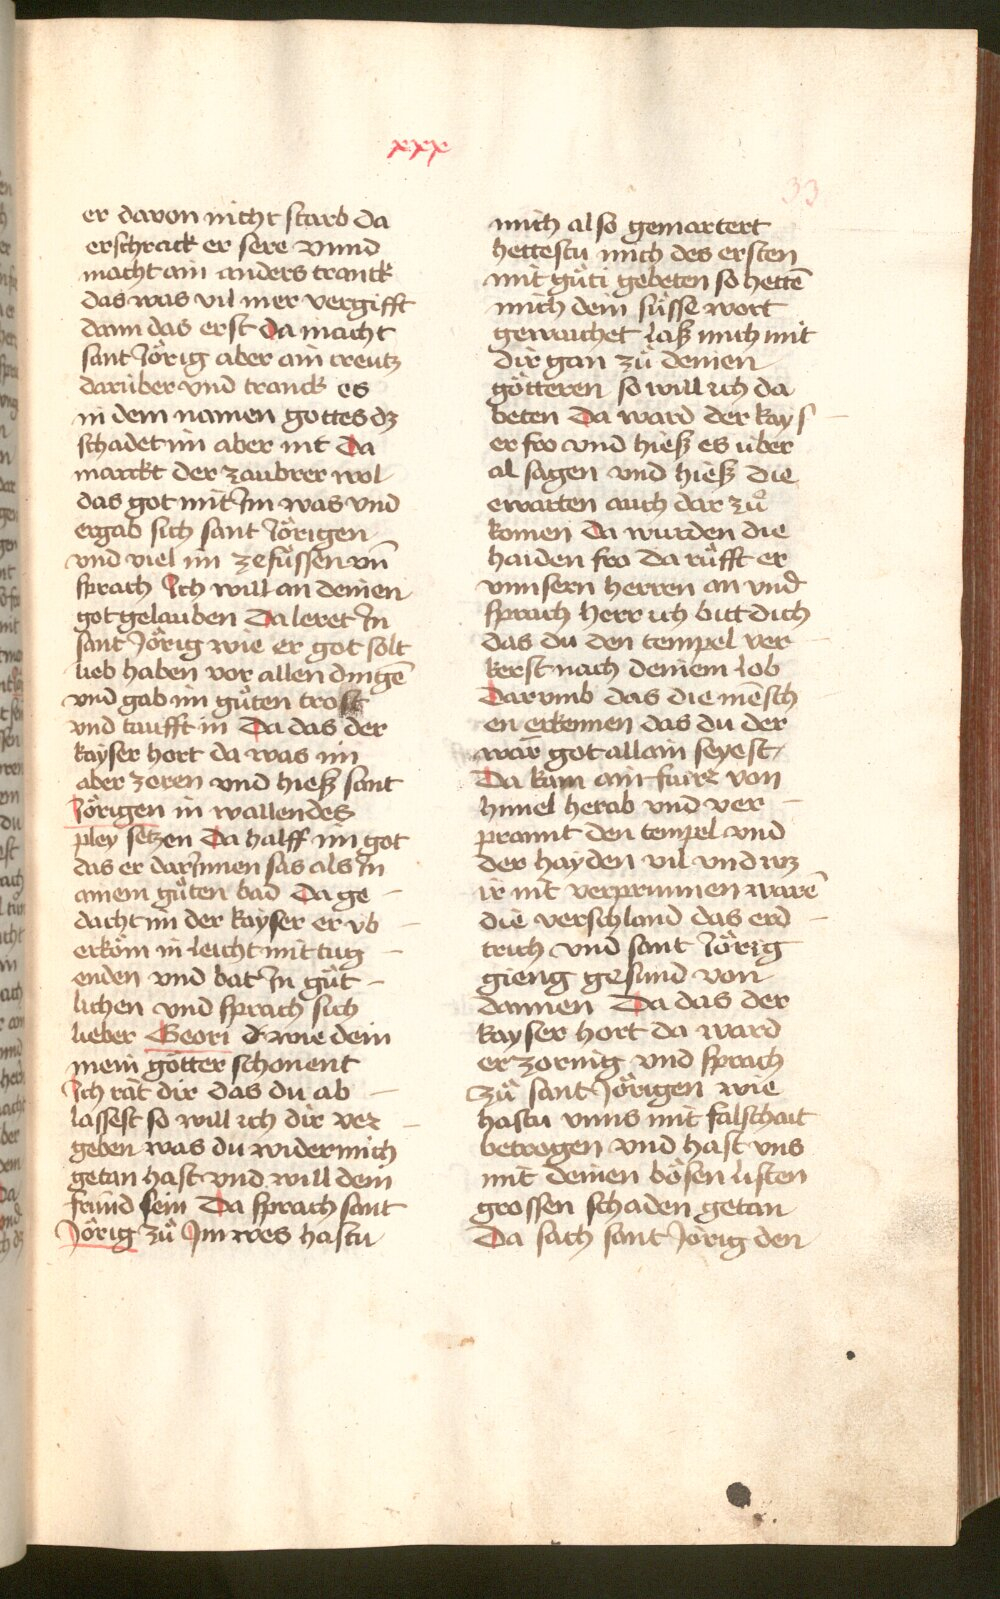 xxx
33
er davon nicht starb da
erschrack er sere vnnd
macht ain anders tranck
das was vil mer vergifft
dann das erst Da macht
sant Jörig aber ain creutz
darüber vnd tranck es
in dem namen gottes dz
schadet im aber nit Da
marckt der zaubrer wol
das got mit Im was vnd
ergab sich sant Jörigen
vnd viel im zefüssen vñ
sprach Ich will an deinen
got gelauben Da leret In
sant Jörig wie er got solt
lieb haben vor allen dingē
vnd gab im gůten trost
vnd taufft in Da das der
kayser hort da was im
aber zoren vnd hiesz sant
Jörigen in wallendes
pley setzen Da halff im got
das er darInnen sas als In
ainem gůten bad Da ge
dacht im der kayser er vb
erköm in leicht mit tug
enden vnd bat In güt
lichen vnd sprach sich
lieber Geori d wie dein
mein götter schonent
Ich rat dir das du ab
lassest so will ich dir ver
geben was du wider mich
getan hast vnd will dein
fraind sein Da sprach sant
Jörig zů Im wes hastu
mich also gemartert
hettestu mich des ersten
mit güti gebeten so hettē
mich dein süsse wort
gewaichet Lasz mich mit
dir gan zů deinen
götteren so will ich da
beten Da ward der kays
er fro vnd hiesz es über
al sagen vnd hiesz die
ewarten auch dar zů
komen Da wurden die
haiden fro da rüfft er
vnnsern herren an vnd
sprach herr ich bitt dich
das du den tempel ver
kerst nach deinem Lob
Darvmb das die mēsch
en erkennen das du der
war got allain seyest
Da kam ain fairr von
himel herab vnd ver
prannt den tempel vnd
der hayden vil vnd wz
ir nit verprunnen warē
die verschland das erd
trich vnd sant Jörig
gieng gesund von
dannen Da das der
kayser hort da ward
er zornig vnd sprach
zů sant Jörigen wie
hastu vnns mit falschait
betrogen vnd hast vns
mit deinen bösen listen
grossen schaden getan
Da sach sant Jörig den